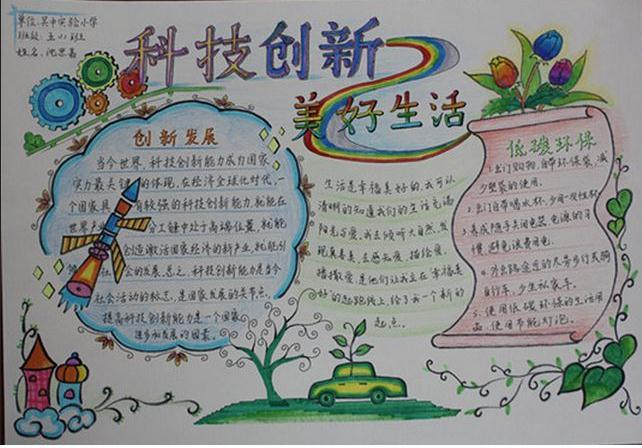 单位:吴中实验小学
班级:五(1)班
姓名:沈思嘉
科技创新
美好生活
创新发展
当今世界,科技创新能力成为国家
实力最关键的体现,在经济全球化时代,一
个国家具有较强的科技创新能力,就能在
世界产业分工链中处于高端位置,就能
创造激活国家经济的新产业,就能引
社会的发展,总之,科技创新能力是当今
社会活动的标志,是国家发展的关节点,
提高科技创新能力是一个国家
进步和发展的因素。
生活是幸福美好的,我可以
清晰的知道我们的生活充满
阳光与爱,我去倾听大自然,发
现真善美,去感知爱,描绘爱,
播撒爱,是他们让我立在幸福美
好的起跑线上,给予我一个新的
起点。
低碳环保
1.出门购物,自带环保袋,减
少塑袋的使用。
2.出门自带喝水杯,少用一次性杯
3.养成随手关闭电器电源的习
惯,避免浪费用电。
4.外出路途近的尽量步行或骑
自行车,少坐私家车。
5.使用低碳环保的生活用
品,使用节能灯泡。